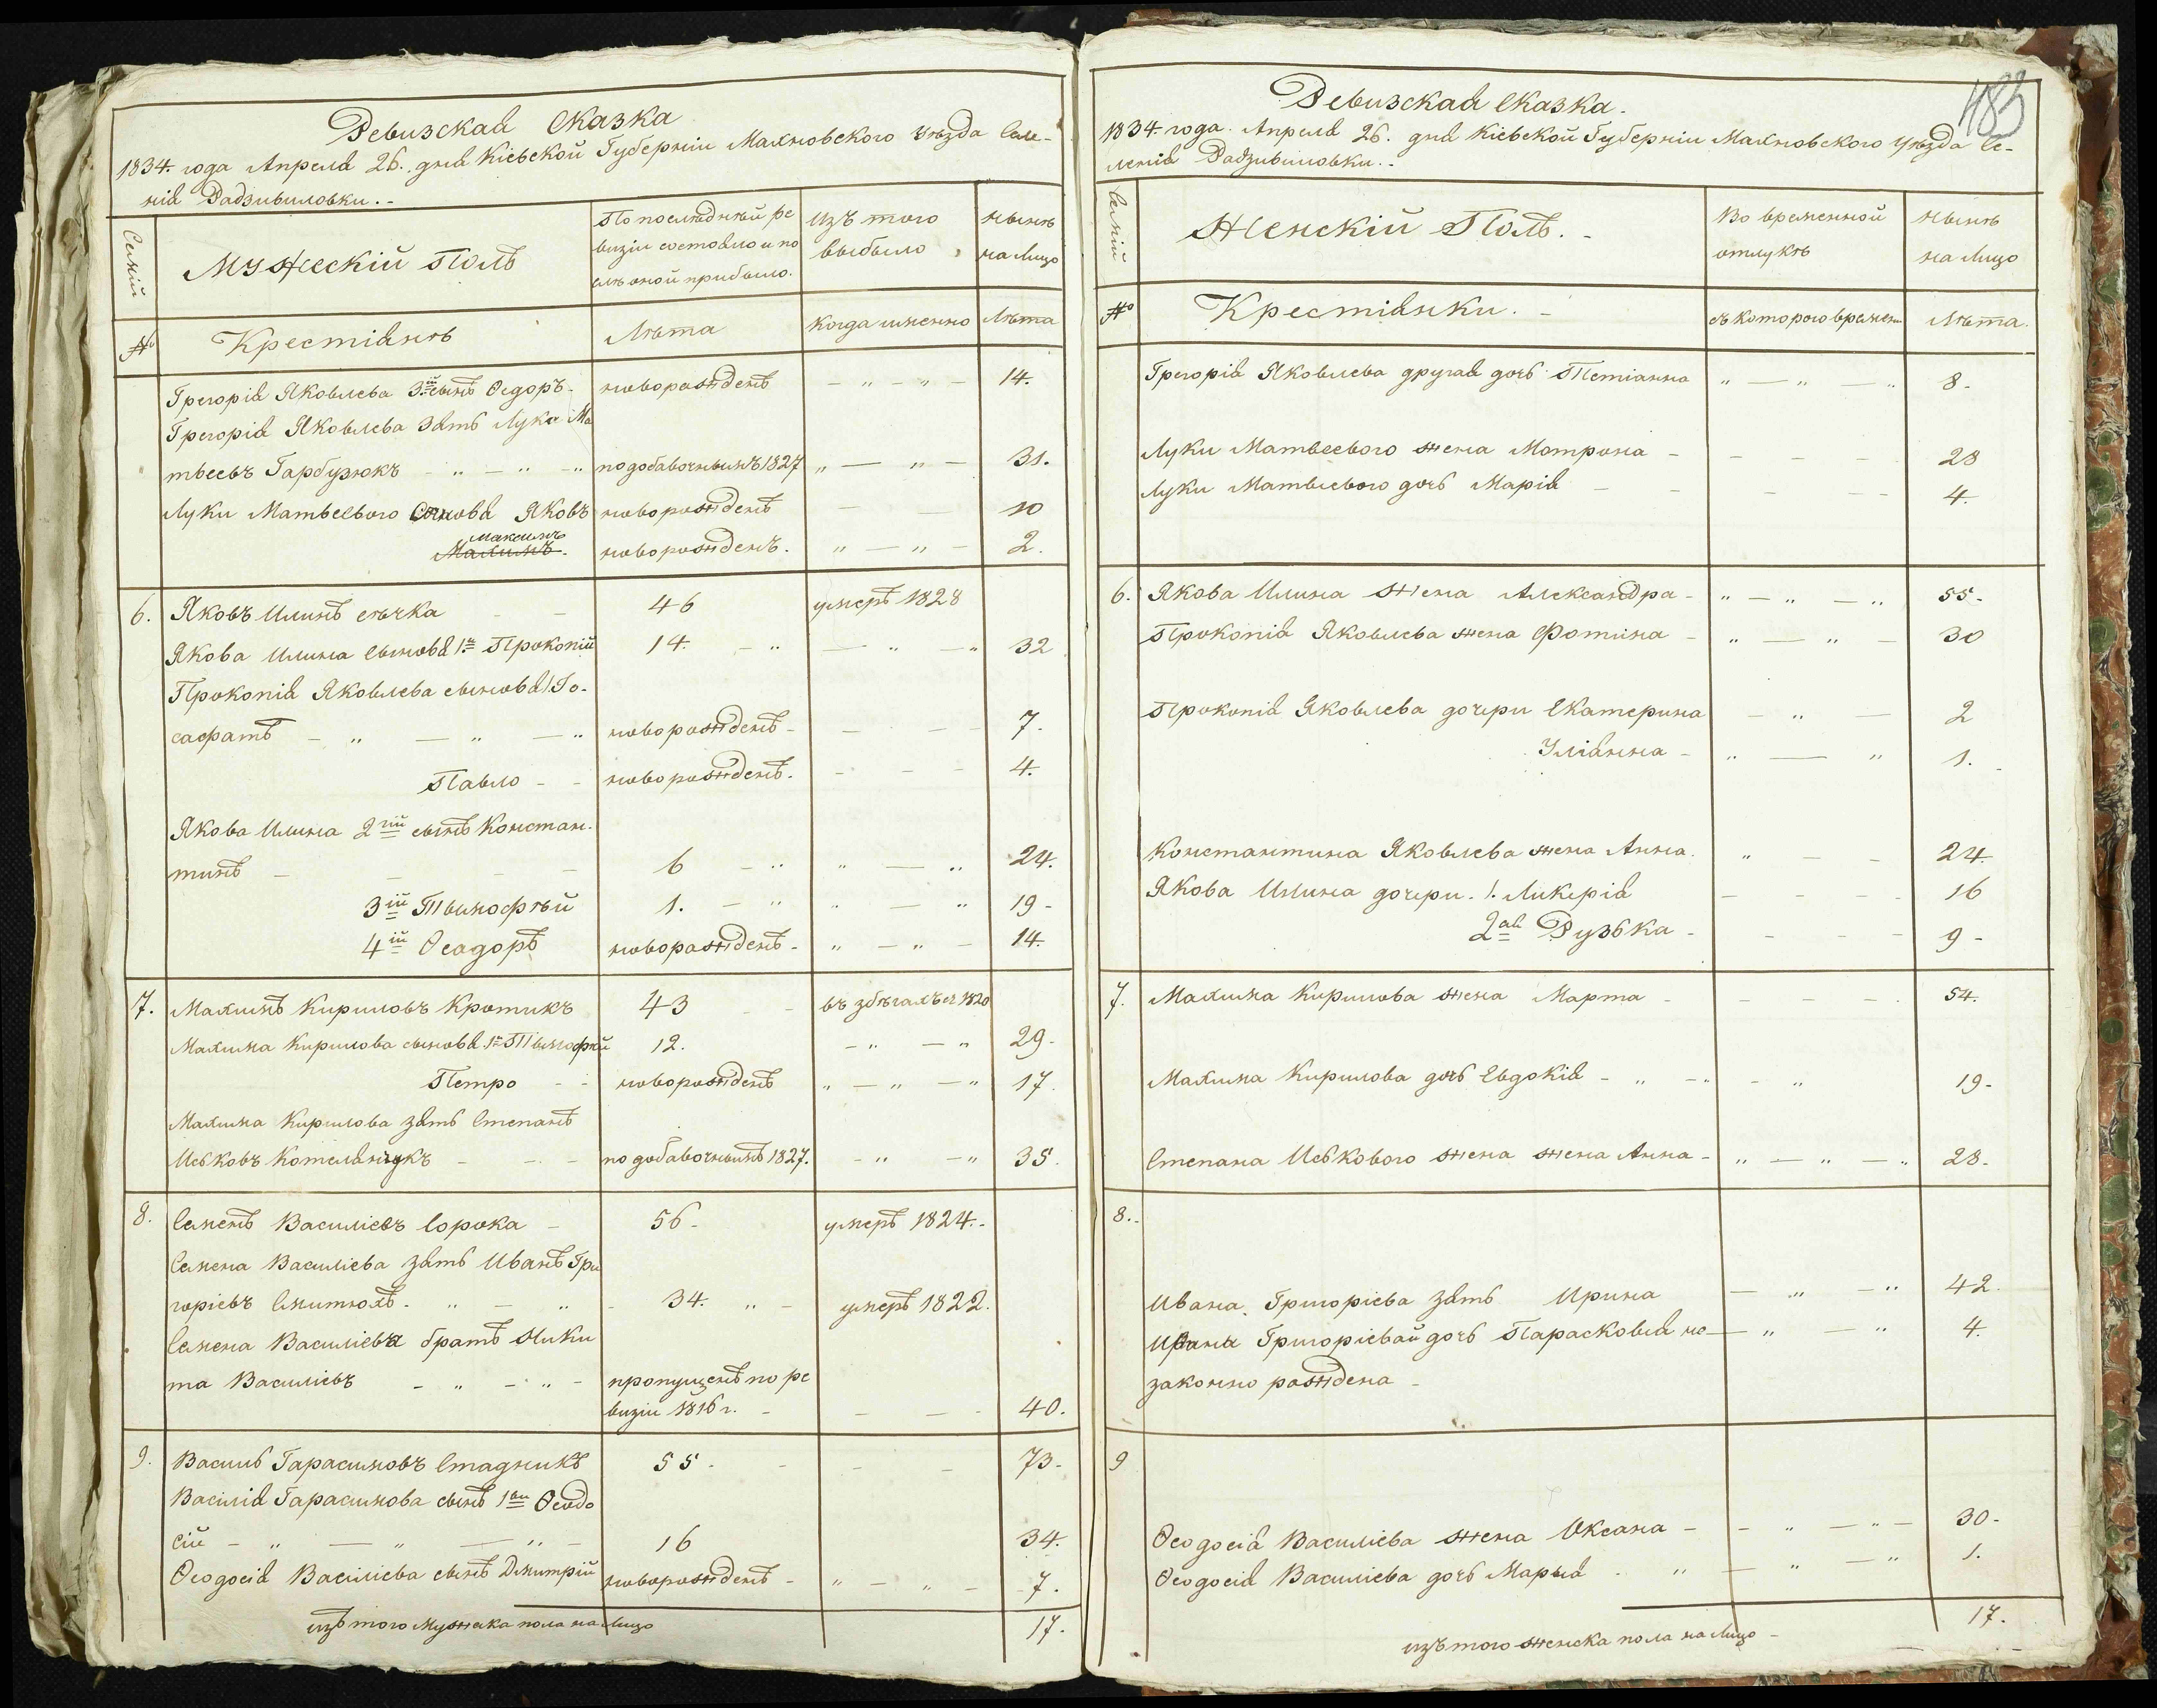 Ревизская Сказка
1834. года Апреля 26. дня Кіевской Губерніи Махновского Уезда Селе-
нія Радзивиловки. -
Семіи
Мужескій Полъ
По последнѣй ре
визіи состояло и по
слѣ оной прибыло.
Изъ того
выбыло
Нынѣ
на Лицо
№
Крестіянѣ
Лѣта
Когда именно
Лѣта
Грегорія Яковлева 3ій сынъ Ѳедоръ. новорожденъ 14.
Грегорія Яковлева Зять Лука Ма
твеевъ Гарбузюкъ по добавочнымъ 1827 31.
Луки Матвеевого Сынова Яковъ новорожденъ 10
Максимъ
новорожденъ. 2.
6. Яковъ Илинъ 46 умеръ 1828
Якова Илина сыновя 1й Прокопій 14. 32
Прокопія Яковлева сыновя 1. Іо-
сафатъ новорожденъ 7.
Павло новорожденъ. 4.
Якова Илина 2гій сынъ Констан-
тинъ 6 24.
3ій Тымофѣй 1. 19
4ій Ѳеодоръ новорожденъ 14.
7. Махимъ Кириловъ Кротикъ 43 въ збѣгахъ съ 1820
Махима Кирилова сыновя 1й Тымофѣй 12. 29
Петро новорожденъ 17.
Махима Кирилова зять Степанъ
Иськовъ по добавочнымъ 1827. 35.
8. Семенъ Василіевъ Сорока 56 умеръ 1824.
Семена Василіева зять Иванъ Гри
горіевъ 34. умеръ 1822.
Семена Василіева братъ Мики
та Василіевъ пропущенъ по ре
визіи 1816 г. 40.
9. Василь Гарасимовъ Стадникъ 55. 73
Василія Гарасимова сынъ 1вый Ѳеодо
сій 16 34.
Ѳеодосія Василіева сынъ Дмитрій новорожденъ 7.
изъ того Мужеска пола на Лицо 17.
483
Ревизская Сказка.
1834. года. Апреля 26. дня Кіевской Губерніи Махновского Уезда Се-
ленія Радзивиловки. -
Семій
Женскій Полъ. -
Во временной
отлукѣ
Нынѣ
на Лицо
№
Крестіянки. -
съ которого времени
Лѣта.
Грегорія Яковлева другая дочь Тетіанна 8.
Луки Матвеевого жена Мотрона 28
Луки Матвеевого дочь Марія 4.
6. Якова Илина жена Александра 55.
Прокопія Яковлева жена Фотина 30
Прокопія Яковлева дочери Екатерина 2
Уліянна 1.
Константина Яковлева жена Анна. 24.
Якова Илина дочери. 1. Ликерія 16
2ая Рузька 9
7. Махима Кирилова жена Марта 54.
Махима Кирилова дочь Евдокія 19
Степана Иськового жена жена Анна 28.
8.
Ивана Григоріева зять Ирина 42.
Ивана Григоріевай дочь Парасковія не 4.
законно рождена
9
Ѳеодосія Василіева жена Оксана 30
Ѳеодосія Василіева дочь Марыя 1.
изъ того женска пола на Лицо 17.